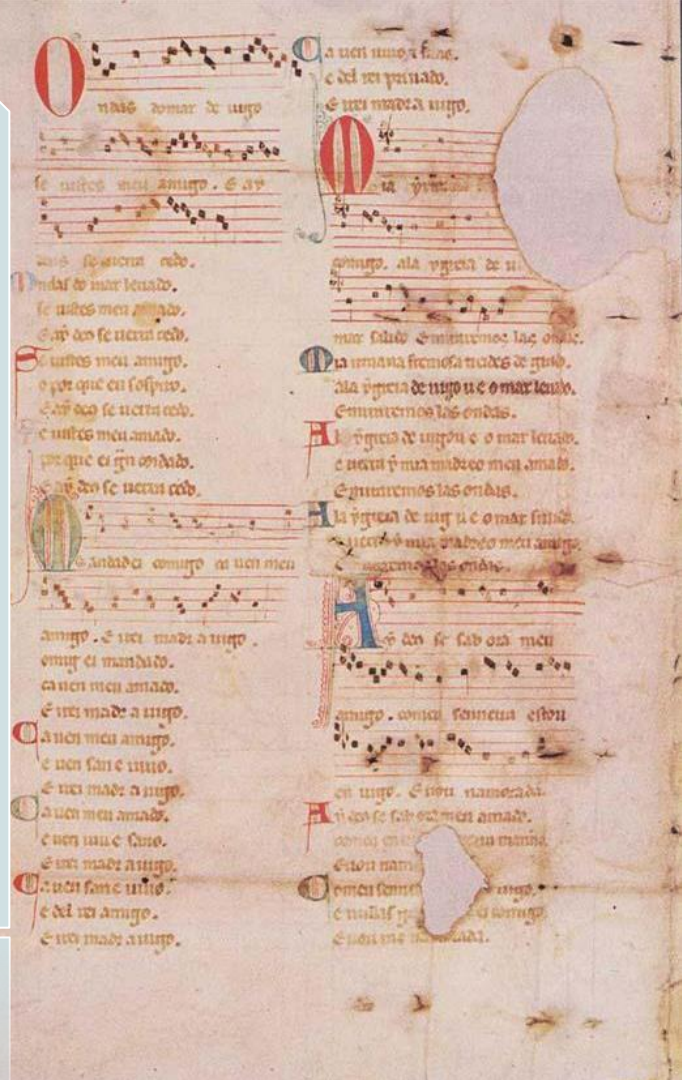 Ondas do mar de uigo
se uistes meu amigo. E ay
deus se uerra cedo.
Ondas do mar leuado.
se uistes meu amado.
E ay deo se uerra cedo.
Se uistes meu amigo.
o por que eu sospiro.
E ay deo se uerra cedo.
Se uistes meu amado.
por que ei gran coidado.
E ay deo se uerra cedo.
Mandad ei comigo ca uen meu
amigo. E irei madr a uigo.
comig ei mandado.
ca uen meu amado.
E irei madr a uigo.
Ca uen meu amigo.
e uen san e uiuo.
E irei madr a uigo.
Ca uen meu amado.
e uen uiu e sano.
E irei madr a uigo.
Ca uen san e uiuo.
e del rei amigo.
E irei madr a uigo.
Ca uen uiuo e sano.
e del rei priuado.
E irei madr a uigo.
Mia yrmana
comigo. ala ygreia de u
mar salido E miraremos las ondas.
Mia irmana fremosa treides de grado.
ala ygreia de uigo u e o mar leuado.
E miraremos las ondas.
A la ygreia de uigo u e o mar leuado.
e uerra y mia madre o meu amado.
E miraremos las ondas.
A la ygreia de uig u e o mar salido.
e uerra y mia madre o meu amigo.
E miraremos las ondas.
Ay deo se sab ora meu
amigo. com eu senneira estou
en uigo. E uou namorada.
Ay deo se sab ora meu amado.
com eu en manno.
E uou nam
Com eu senn uigo.
e nullas gardas ei comigo
E uou me namorada.